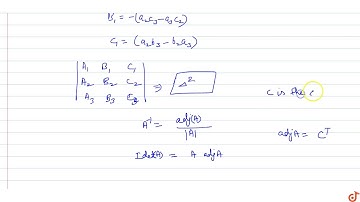 B₁ = -(a₂c₃ - a₃c₂)
C₁ = (a₂b₃ - b₂a₃)
| A₁ B₁ C₁ |
| A₂ B₂ C₂ | ⇒ Δ²
| A₃ B₃ C₃ |
C is the c
A⁻¹ = adj(A) / |A|
adj A = Cᵀ
I det(A) = A adj A